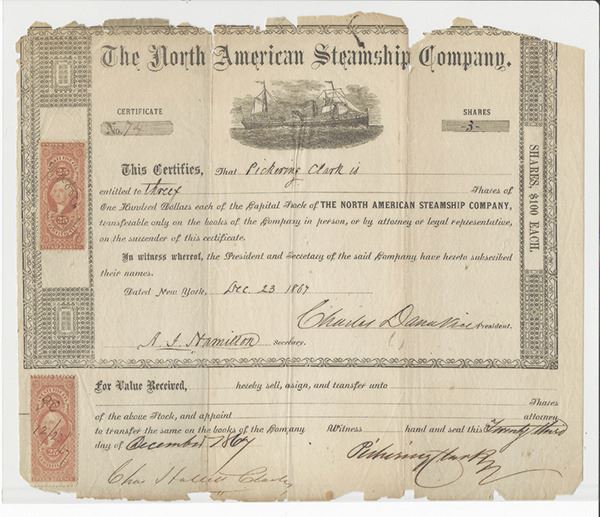 The North American Steamship Company.
CERTIFICATE
No. 74
SHARES
-3-
This Certifies, That Pickering Clark is
entitled to three Shares of
One Hundred Dollars each of the Capital Stock of THE NORTH AMERICAN STEAMSHIP COMPANY,
transferable only on the books of the Company in person, or by attorney or legal representative,
on the surrender of this certificate.
In witness whereof, the President and Secretary of the said Company have hereto subscribed
their names.
Dated New York, Dec 23 1867
Charles President.
A. J. Hamilton Secretary.
SHARES, $100 EACH.
For Value Received, hereby sell, assign, and transfer unto
Shares
of the above Stock, and appoint attorney
to transfer the same on the books of the Company Witness hand and seal this Twenty third
day of December 1867
Pickering Clark
Chas Hallett
25
25